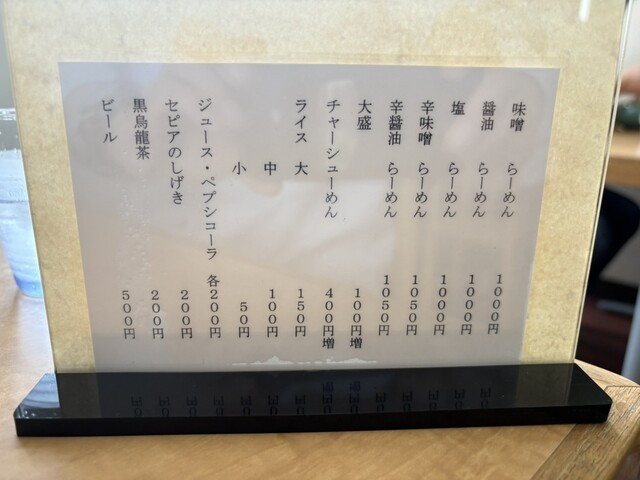 味噌 らーめん 1000円
醤油 らーめん 1000円
塩 らーめん 1000円
辛味噌 らーめん 1050円
辛醤油 らーめん 1050円
大盛 100円増
チャーシューめん 400円増
ライス 大 150円
中 100円
小 50円
ジュース・ペプシコーラ 各200円
セピアのしげき 200円
黒烏龍茶 200円
ビール 500円